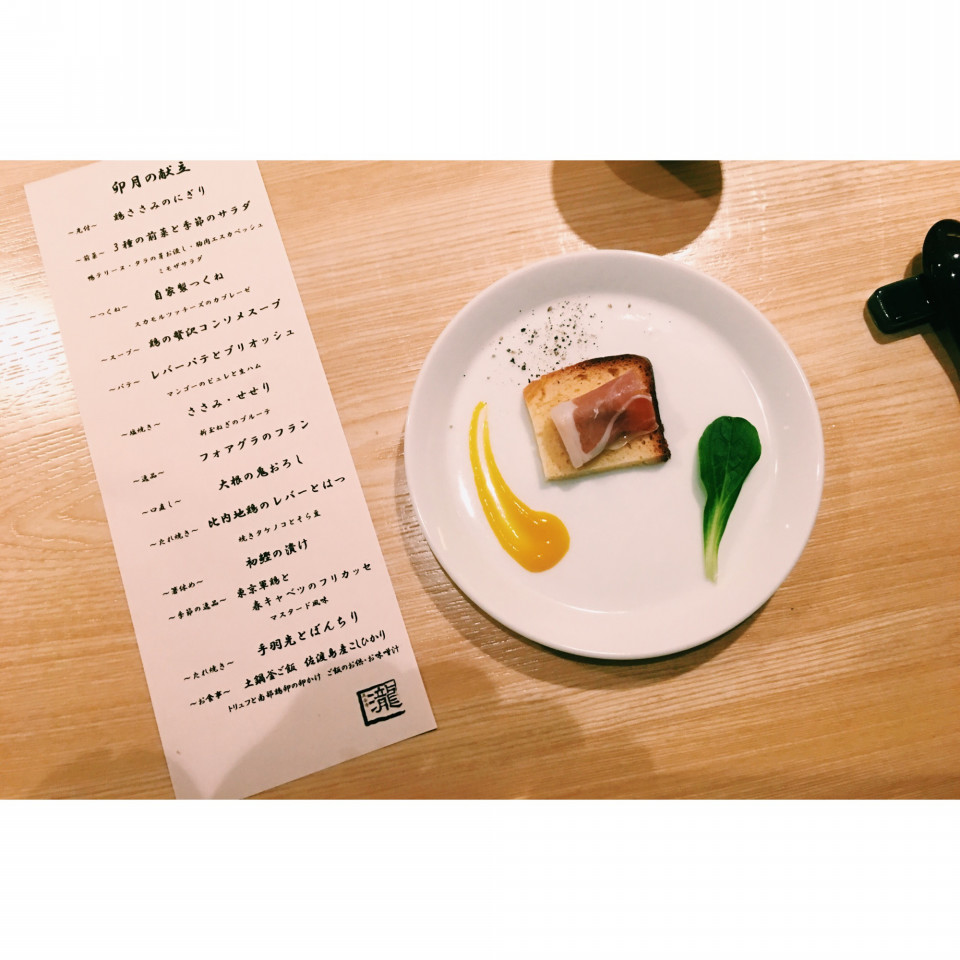 卯月の献立
~先付~ 鶏ささみのにぎり
~前菜~ 3種の前菜と季節のサラダ
鴨テリーヌ・タラの芽お浸し・胸肉エスカベッシュ
ミモザサラダ
~つくね~ 自家製つくね
スカモルツァチーズのカプレーゼ
~スープ~ 鶏の贅沢コンソメスープ
~パテ~ レバーパテとブリオッシュ
マンゴーのピュレと生ハム
~塩焼き~ ささみ・せせり
新玉ねぎのブルーテ
~逸品~ フォアグラのフラン
~口直し~ 大根の鬼おろし
~たれ焼き~ 比内地鶏のレバーとはつ
焼きタケノコとそら豆
~箸休め~ 初鰹の漬け
~季節の逸品~ 東京軍鶏と
春キャベツのフリカッセ
マスタード風味
~たれ焼き~ 手羽先とぼんちり
~お食事~ 土鍋釜ご飯 佐渡島産こしひかり
トリュフと南部鶏卵の卵かけ ご飯のお供・お味噌汁
瀧